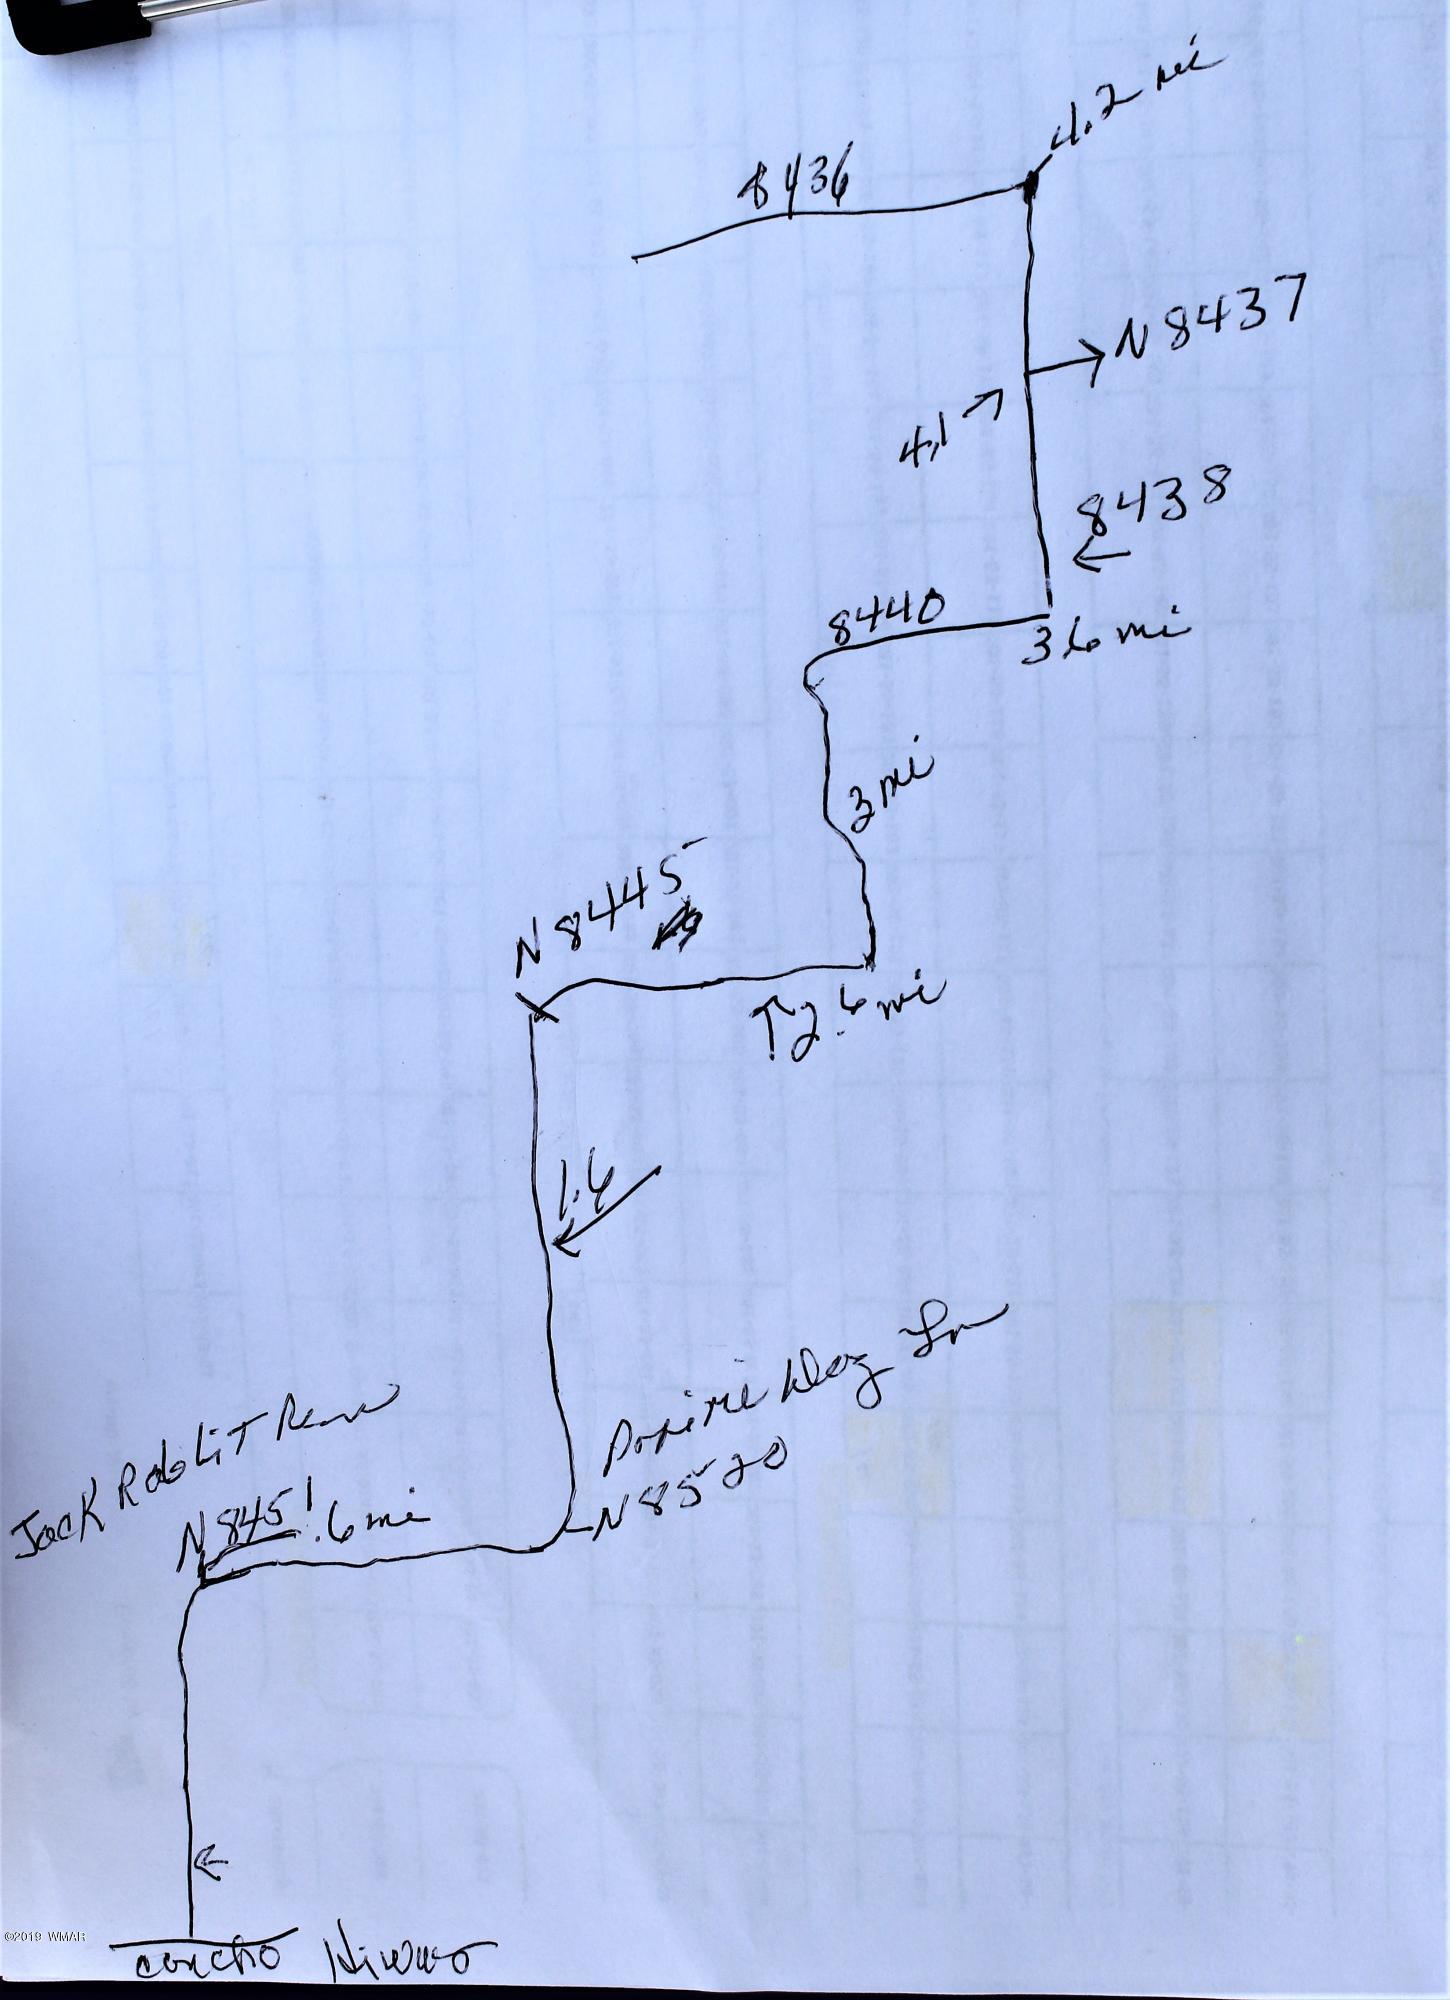 4.2 mi
8436
N 8437
4.1
8438
8440
3.6 mi
3 mi
N 8445
2.6 mi
1.6
Prairie Dog Ln
N 8520
Jack Rabbit Run
N 8451
.6 mi
©2019 WMAR
concho